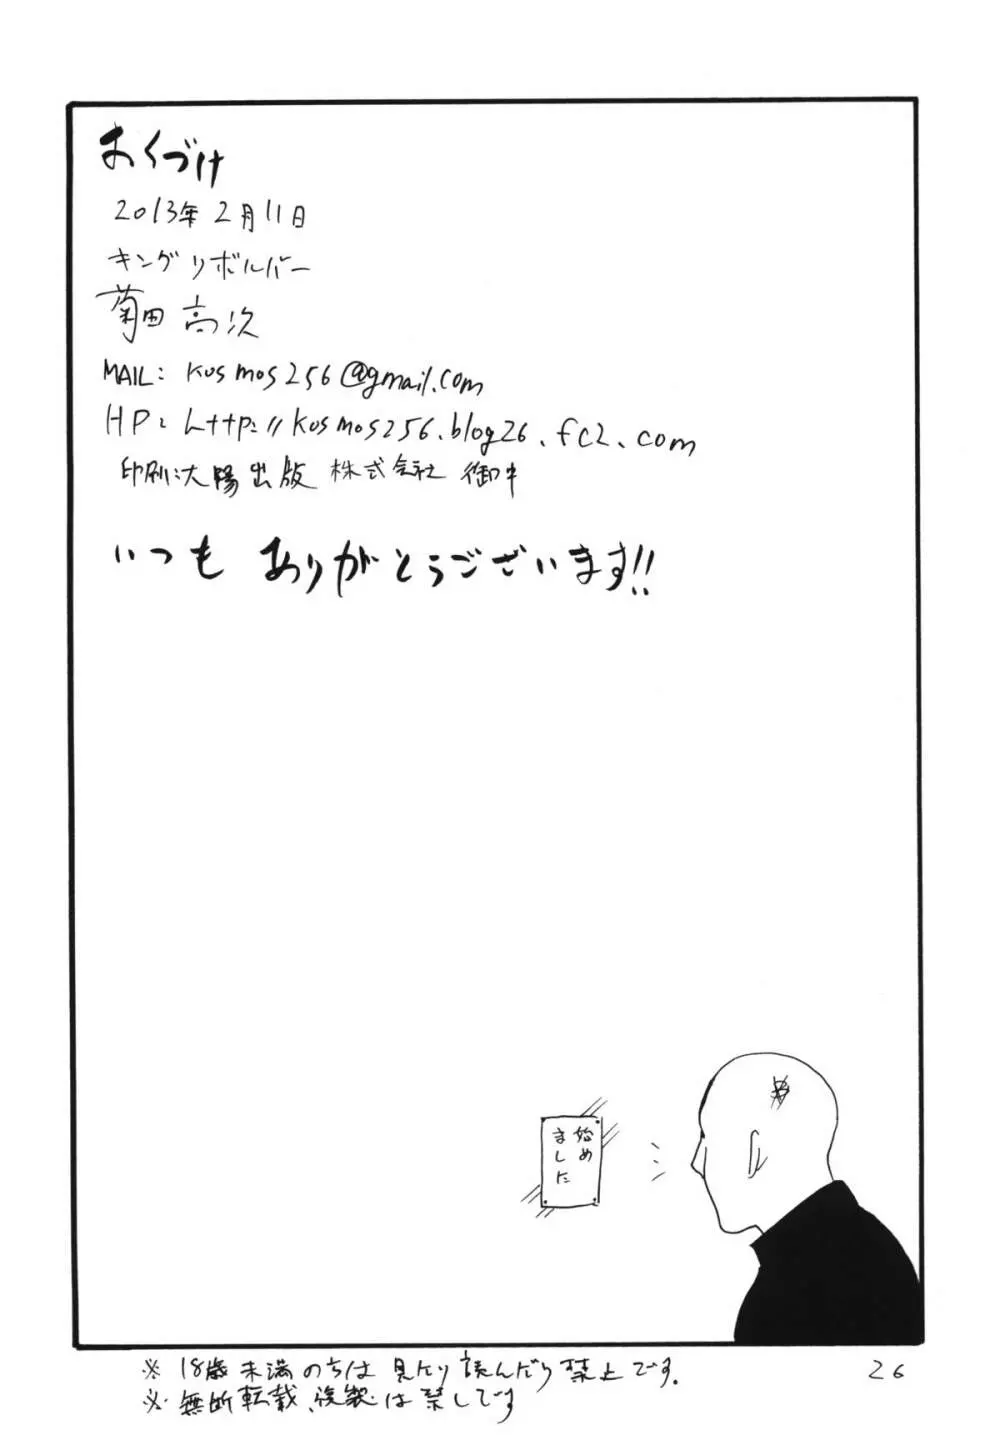 おくづけ
2013年2月11日
キングリボルバー
菊田 高次
MAIL: kosmos256@gmail.com
HP: http://kosmos256.blog26.fc2.com
印刷:大陽出版 株式会社 御中
いつも ありがとうございます!!
始め
ました
※ 18歳未満のちは 見たり読んだり禁止です.
※ 無断転載、複製は禁しです
26